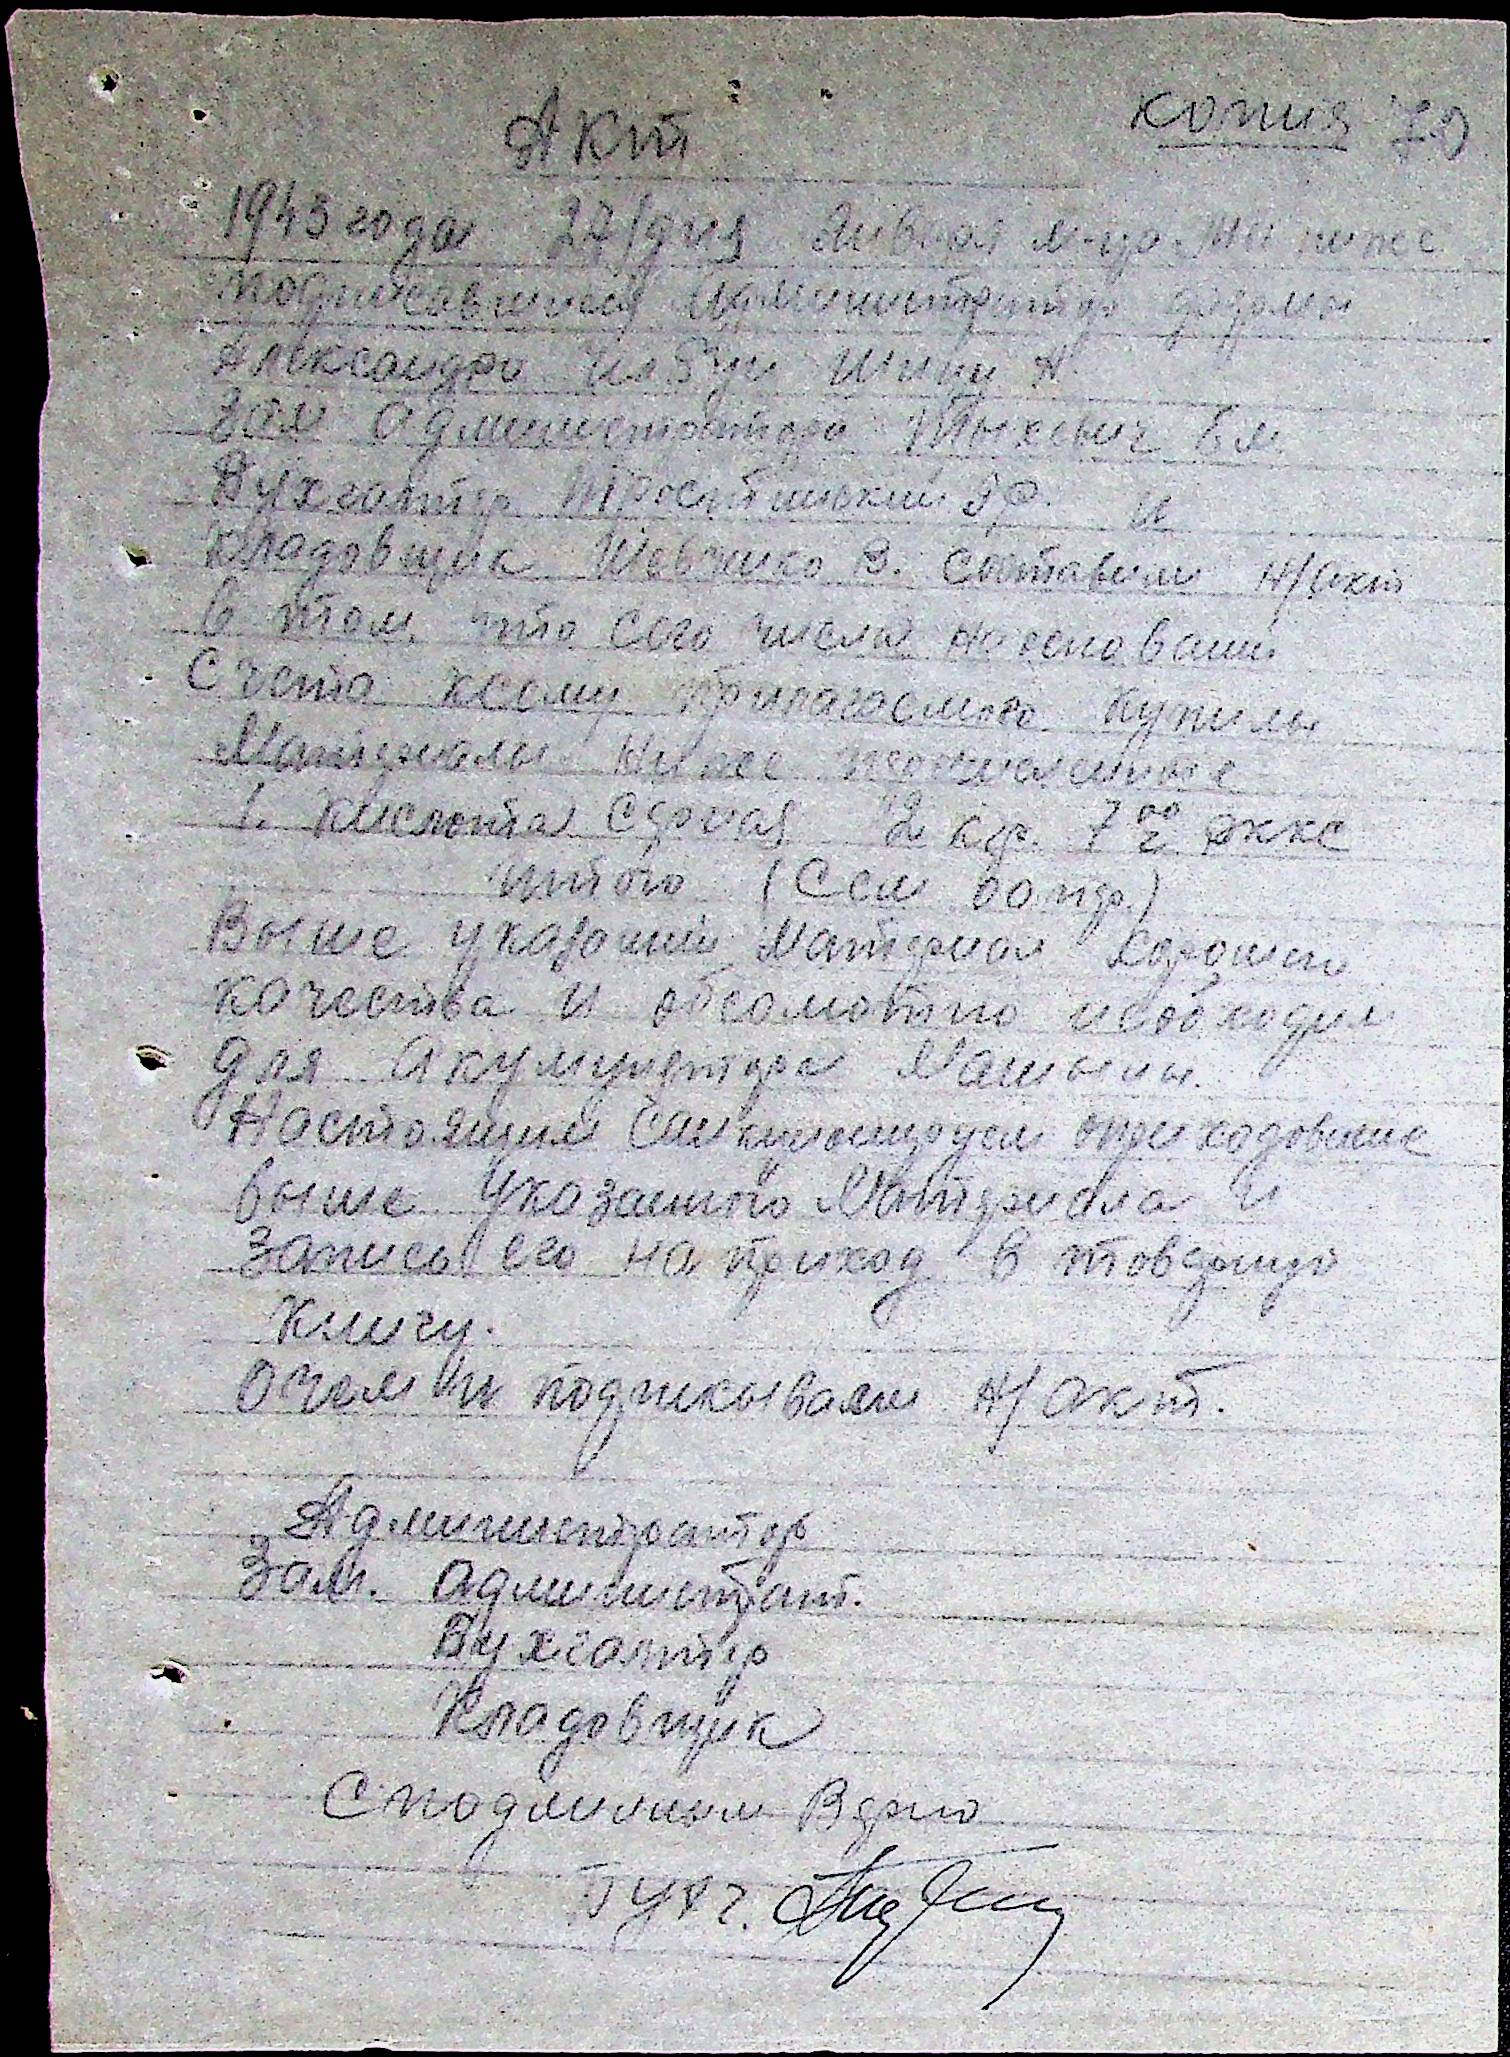 копия 70
Акт
1943 года 27/дня января м-ца Мы ниже
подписавшиеся Администратор фермы
Александра Шипи А.
Зам администратора Тыхевич Ем.
Бухгалтер и
кладовщик Шевчико В. составили н/акт
в том, что сего числа на основании
счета ксему прилагаемого купили
Материалы ниже перечисленные
1. Кислота серная 2 кгр. 7 оо
итого (Сем )
Выше указаний Материал хорошего
качества и абсолютно необходим
для акумулятора Машыны.
Настоящим оприходование
выше указанного Материала и
запись его на приход в товарную
книгу.
О чем и подписываем н/акт.
Администратор
Зам. администрат.
Бухгалтер
Кладовщик
С подлинным Верно
Бухг.